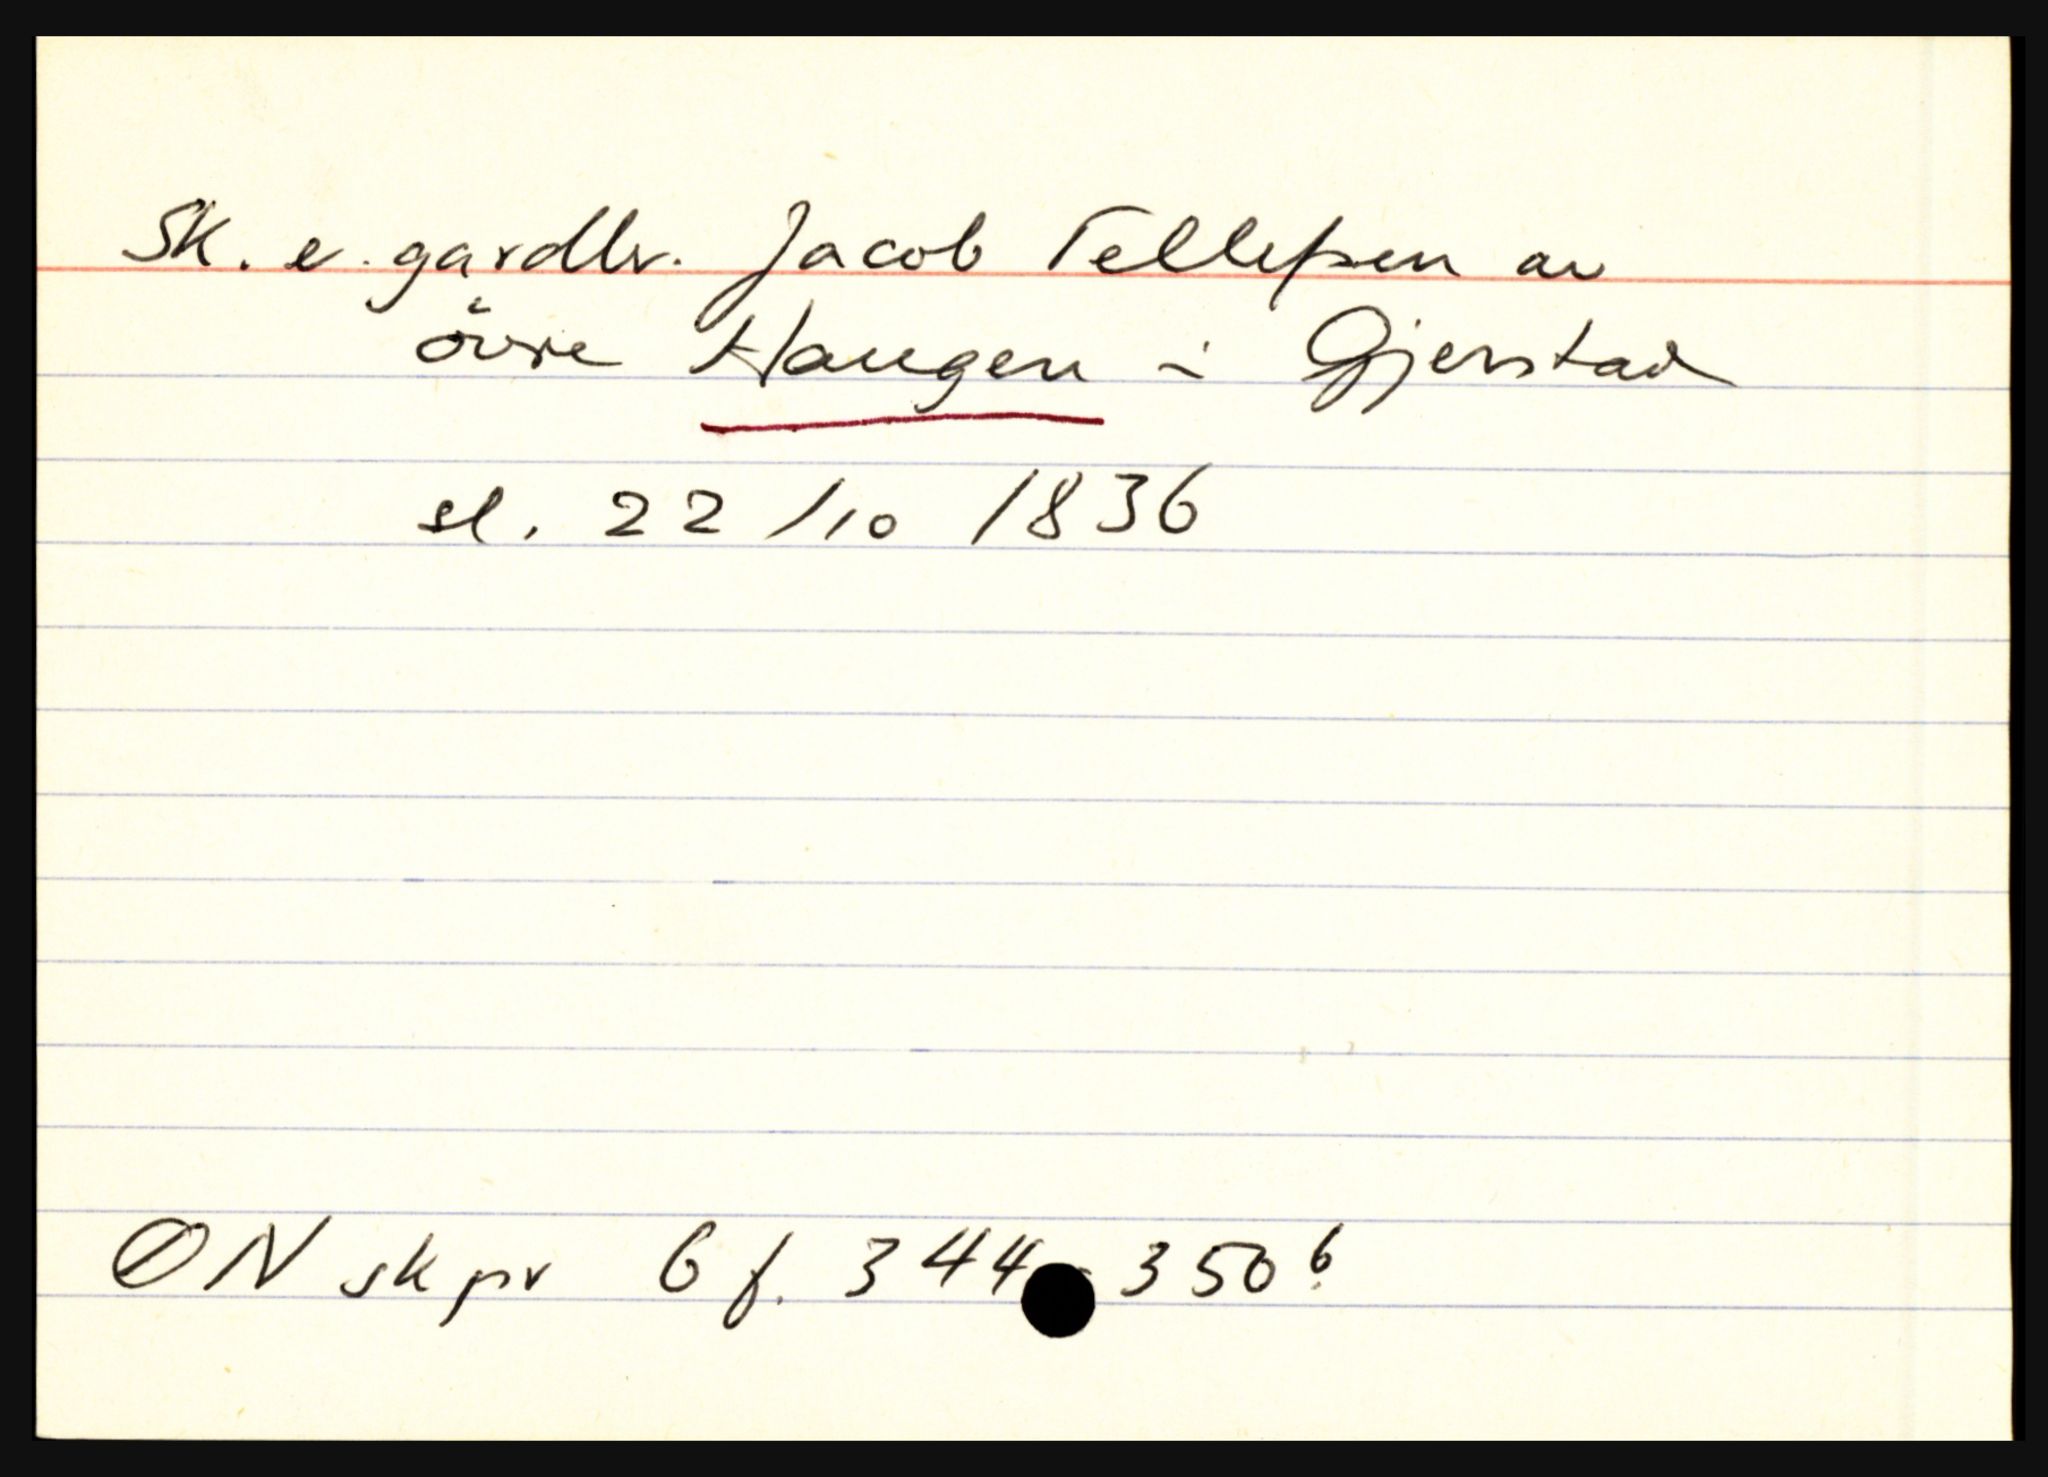 Sk. e. gardbr. Jacob Tellefsen av
övre Haugen i Gjerstad
sl. 22/10 1836
ØN skpr 6 f. 344 - 350 b.